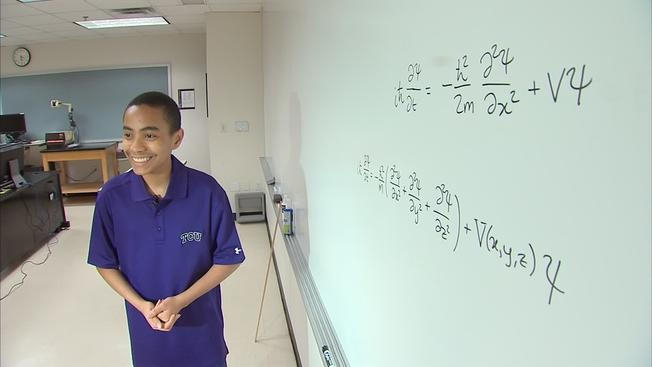 iħ ∂Ψ/∂t = -ħ²/2m ∂²Ψ/∂x² + VΨ
iħ ∂Ψ/∂t = -ħ²/m (∂²Ψ/∂x² + ∂²Ψ/∂y² + ∂²Ψ/∂z²) + V(x,y,z) Ψ
TCU